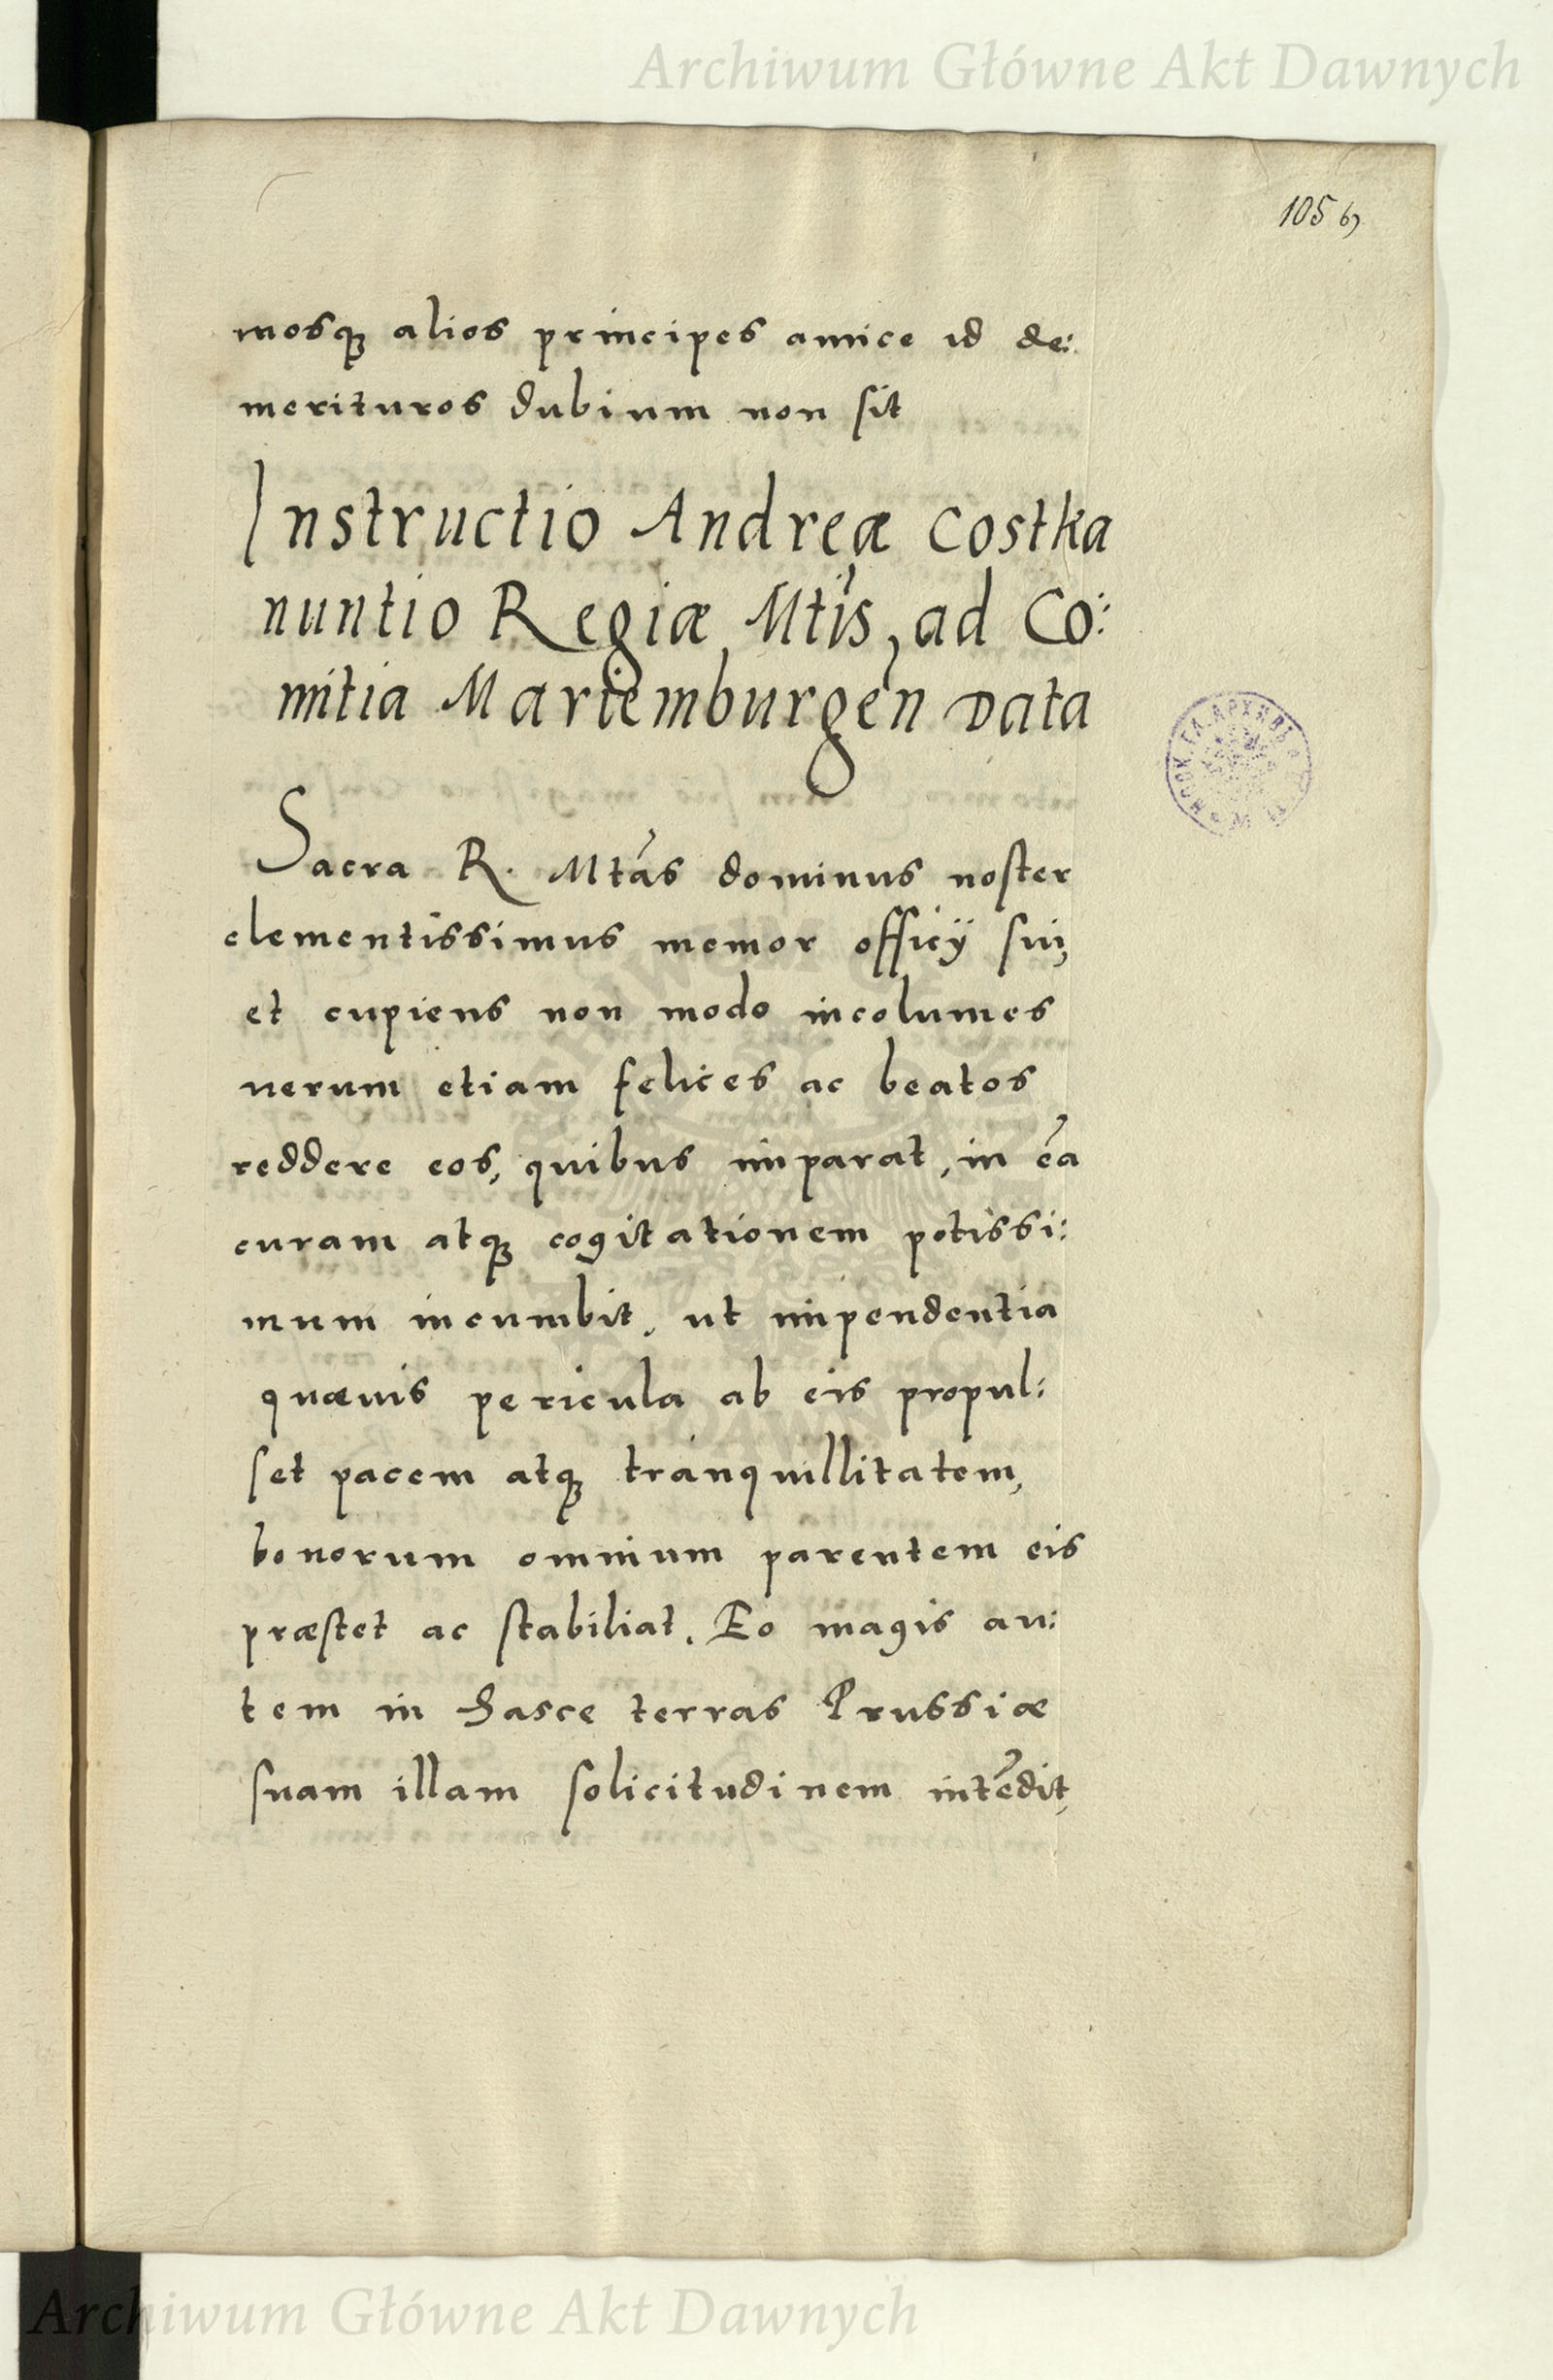 Archiwum Główne Akt Dawnych
105
mosq₃ alios principes amice id de:
merituros dubium non sit
Instructio Andreæ Costka
nuntio Regiæ Mtis, ad Co:
mitia Mariemburgen Data
Sacra R. Mtas dominus noster
clementissimus memor officÿ sui,
et cupiens non modo incolumes
uerum etiam felices ac beatos
reddere eos, quibus imparat, in eā
curam atq₃ cogitationem potissi:
mum incumbit, ut impendentia
quæuis pericula ab eis propul:
set pacem atq₃ tranquillitatem,
bonorum omnium parentem eis
præstet ac stabiliat. Eo magis au:
tem in hasce terras Prussiæ
suam illam solicitudinem intēdit,
Archiwum Główne Akt Dawnych